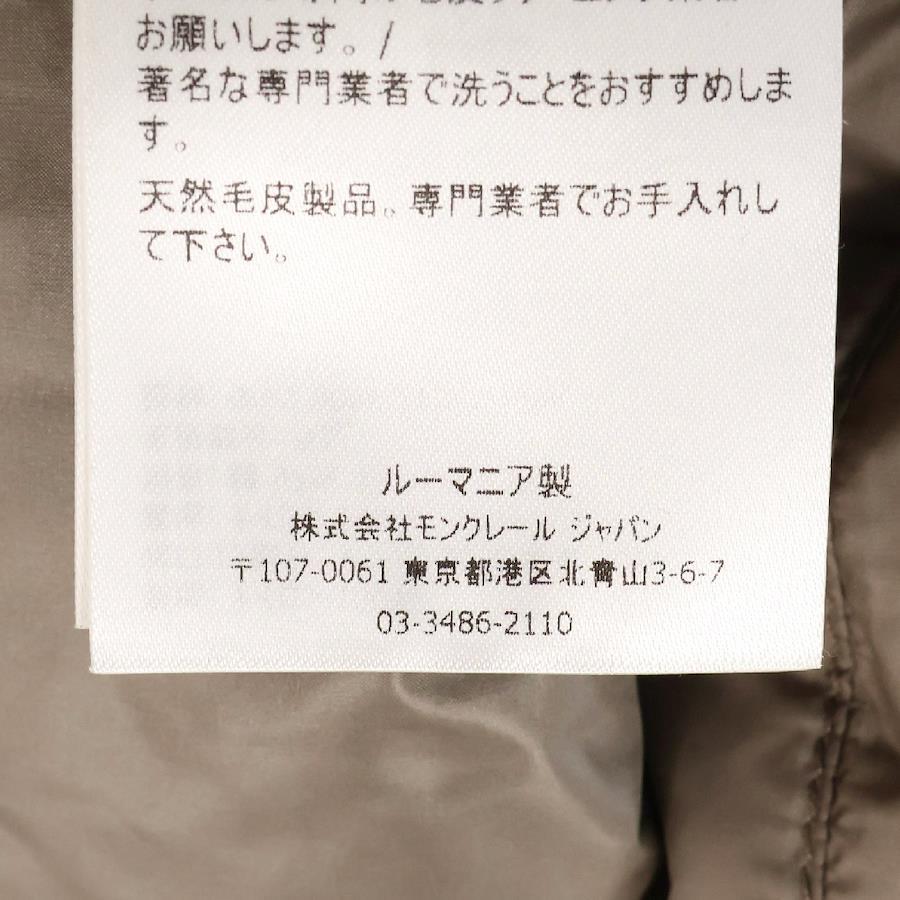 お願いします。/
著名な専門業者で洗うことをおすすめしま
す。
天然毛皮製品。専門業者でお手入れし
て下さい。
ルーマニア製
株式会社モンクレール ジャパン
〒107-0061 東京都港区北青山3-6-7
03-3486-2110